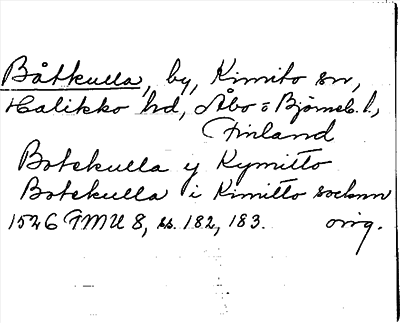 Båtkulla, by, Kimito sn,
Halikko hd, Åbo o Björneb. l.,
Finland
Botekulla y Kymitto
Botekulla i Kimitto sochnn
1526 FMU 8, ss. 182, 183. orig.